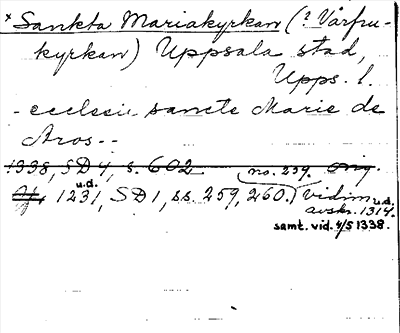 × Sankta Mariakyrkan (? Vårfru-
kyrkan) Uppsala stad,
Upps. l.
- ecclesie sancte Marie de
Aros--
1338, SD 4, s. 602 no. 259. ong.
Jfr u.d. 1231, SD 1, ss. 259, 260.) vidim u.d.
avskr. 1314.
samt. vid. 4/5 1338.